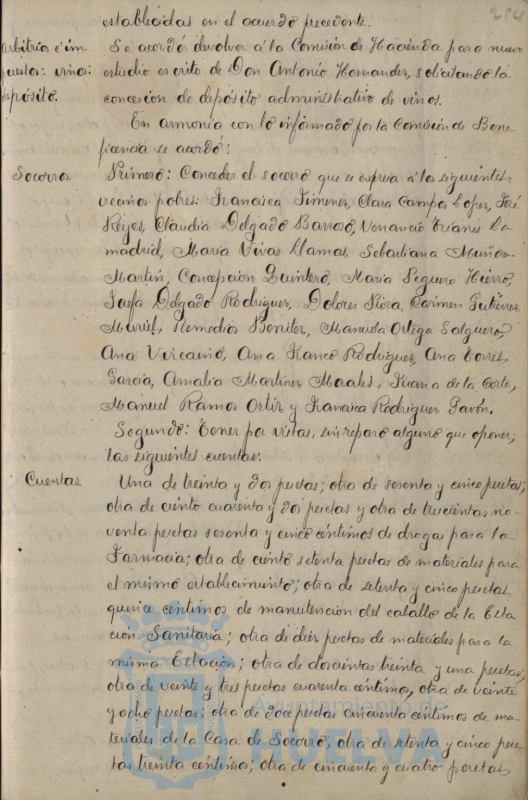 254
establecidas en el acuerdo precedente.
Arbitrios é im
puestos: vinos:
depósito.
Se acordó devolver á la Comisión de Hacienda para nuevo
estudio escrito de Don Antonio Hernandez, solicitando la
concesion de depósito administrativo de vinos.
En armonía con lo informado por la Comisión de Bene
ficencia se acordó:
Socorros
Primero: Conceder el socorro que se expresa á los siguientes
vecinos pobres: Francisca Jimenez, Clara Campos Lopez, José
Reyes, Claudia Delgado Barroso, Venancio Trianes La
madrid, María Vivas Llamas, Sebastiana Muñoz
Martín, Concepcion Quintero, María Seguro Hierro,
Josefa Delgado Rodriguez, Dolores Carmen Gutiérrez
Muriel, Remedios Benitez, Manuela Ortega Salguero,
Ana Vizcaino, Ana Franco Rodriguez, Ana Torres
García, Amalia Martinez Morales, Juana de la Corte,
Manuel Ramos Ortiz y Francisca Rodriguez Pavón.
Segundo: Tener por vistas, sin reparo alguno que oponer,
las siguientes cuentas:
Cuentas
Una de treinta y dos pesetas; otra de sesenta y cinco pesetas;
otra de ciento cuarenta y dos pesetas y otra de trescientas no-
venta pesetas sesenta y cinco céntimos de drogas para la
Farmacia; otra de ciento setenta pesetas de materiales para
el mismo establecimiento; otra de setenta y cinco pesetas
quince céntimos de manutención del caballo de la Esta
ción Sanitaria; otra de diez pesetas de materiales para la
misma Estación; otra de doscientas treinta y una pesetas;
otra de veinte y tres pesetas cuarenta céntimos, otra de veinte
y ocho pesetas; otra de doce pesetas cincuenta céntimos de ma-
teriales de la Casa de Socorro; otra de setenta y cinco pese
tas treinta céntimos; otra de cincuenta y cuatro pesetas
Ayuntamiento de
HUELVA